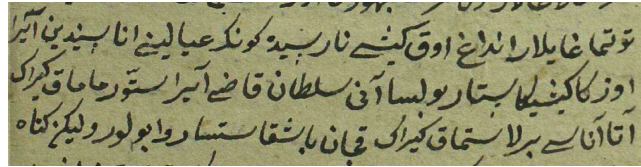 توتماغایلار انداغ اوق کیشی نارسیده کونک عیالینی اناسیندین آیرا
اوزکا کیشیکا ساتار بولسا آنی سلطان قاضی آیرا ساتورماماق کیراک
آتا آناسی برلا ساتماق کیراک قچان باشقا ساتسا روا بولور ولیکن کناه